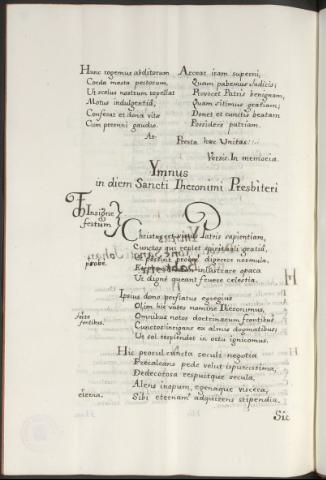 Hunc rogemus abditorum
Corda mœsta pectorum,
Ut scelus nostrum repellat
Motus indulgentiâ,
Conferat et dona vitæ
Cum perenni gaudio.
Arceat iram superni,
Quam pabemus Judicis;
Provocet Patris benignam,
Quam sitimus gratiam;
Donet et cunctis beatam
Possidere patriam.
Præsta hæc Unitas
Versic. In memoria.
Ymnus
in diem Sancti Iheronimi Presbiteri
Insigne
festum
Christus est virtus Patris sapientiam,
Cunctos qui replet spirituali gratiâ,
Ut possint probè digerere normula,
illustrare opaca
Ut dignè queant fruere celestia.
probe.
Ipsius dono perflatus egregius
Olim hic vates nomine Iheronimus,
Omnibus notas doctrinarum frontibus
Cunctos inrigans ex almis dogmatibus,
Ut sol resplendet in ortu ignicomus.
fontibus.
Hic procul cuncta seculi negotia
Præcaleans pede velut ispurcissima,
Dedecorosa respuitque secula,
Alens inopum, egenaque viscera,
Sibi eternam adquirens stipendia.
eterna.
Sic